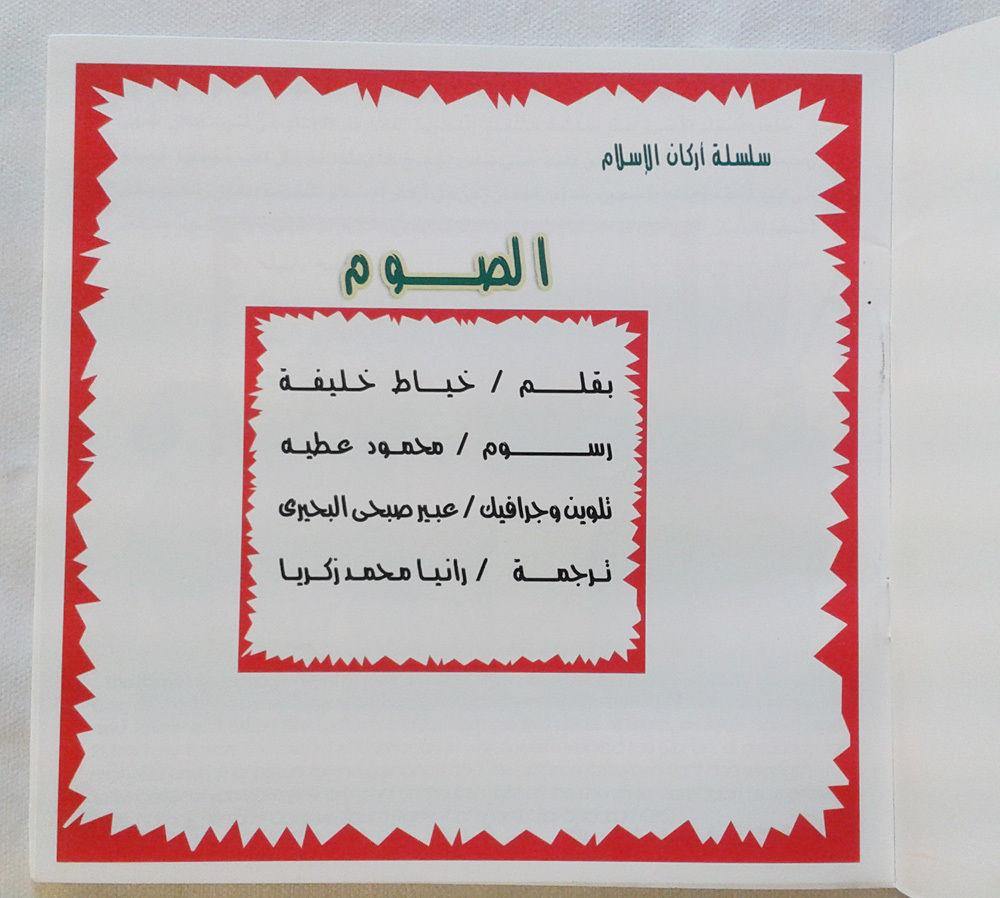 سلسلة أركان الإسلام
الصوم
بقلم / خياط خليفة
رسوم / محمود عطيه
تلوين وجرافيك / عبير صبحى البحيرى
ترجمة / رانيا محمد زكريا